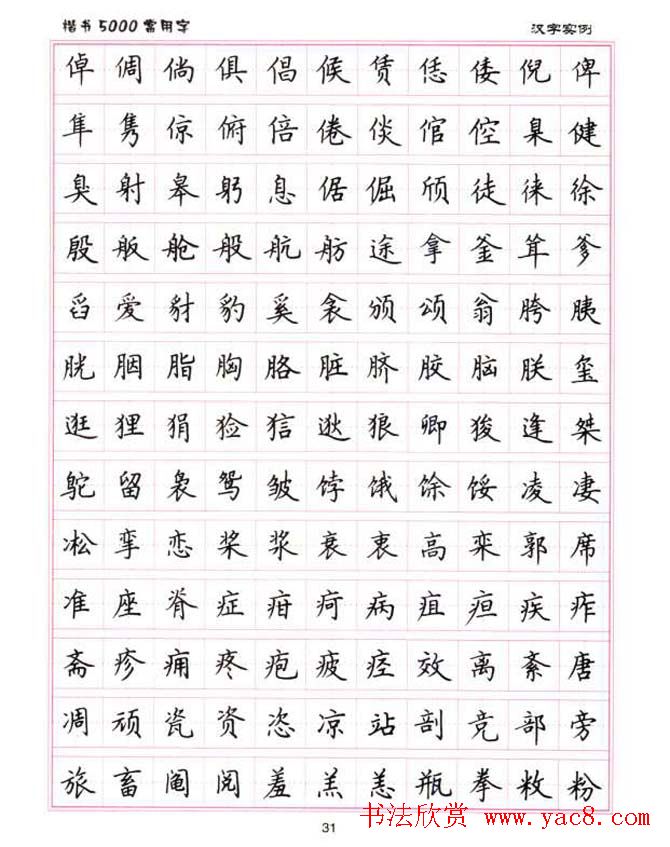 楷书5000常用字 汉字实例
倬 倜 倘 俱 倡 候 赁 恁 倭 倪 俾
隼 隽 倞 俯 倍 倦 倓 倌 倥 臬 健
臭 射 皋 躬 息 倨 倔 颀 徒 徕 徐
殷 舨 舱 般 航 舫 途 拿 釜 耸 爹
舀 爱 豺 豹 奚 衾 颁 颂 翁 胯 胰
胱 胭 脂 胸 胳 脏 脐 胶 脑 朕 玺
逛 狸 狷 猃 狺 逖 狼 卿 狻 逢 桀
鸵 留 袅 鸳 皱 饽 饿 馀 馁 凌 凄
凇 挛 恋 桨 浆 衰 衷 高 栾 郭 席
准 座 脊 症 疳 疴 病 疽 疸 疾 痄
斋 疹 痈 疼 疱 疲 痉 效 离 紊 唐
凋 颃 瓷 资 恣 凉 站 剖 竞 部 旁
旅 畜 阄 阅 羞 羔 恙 瓶 拳 敉 粉
31
书法欣赏 www.yac8.com